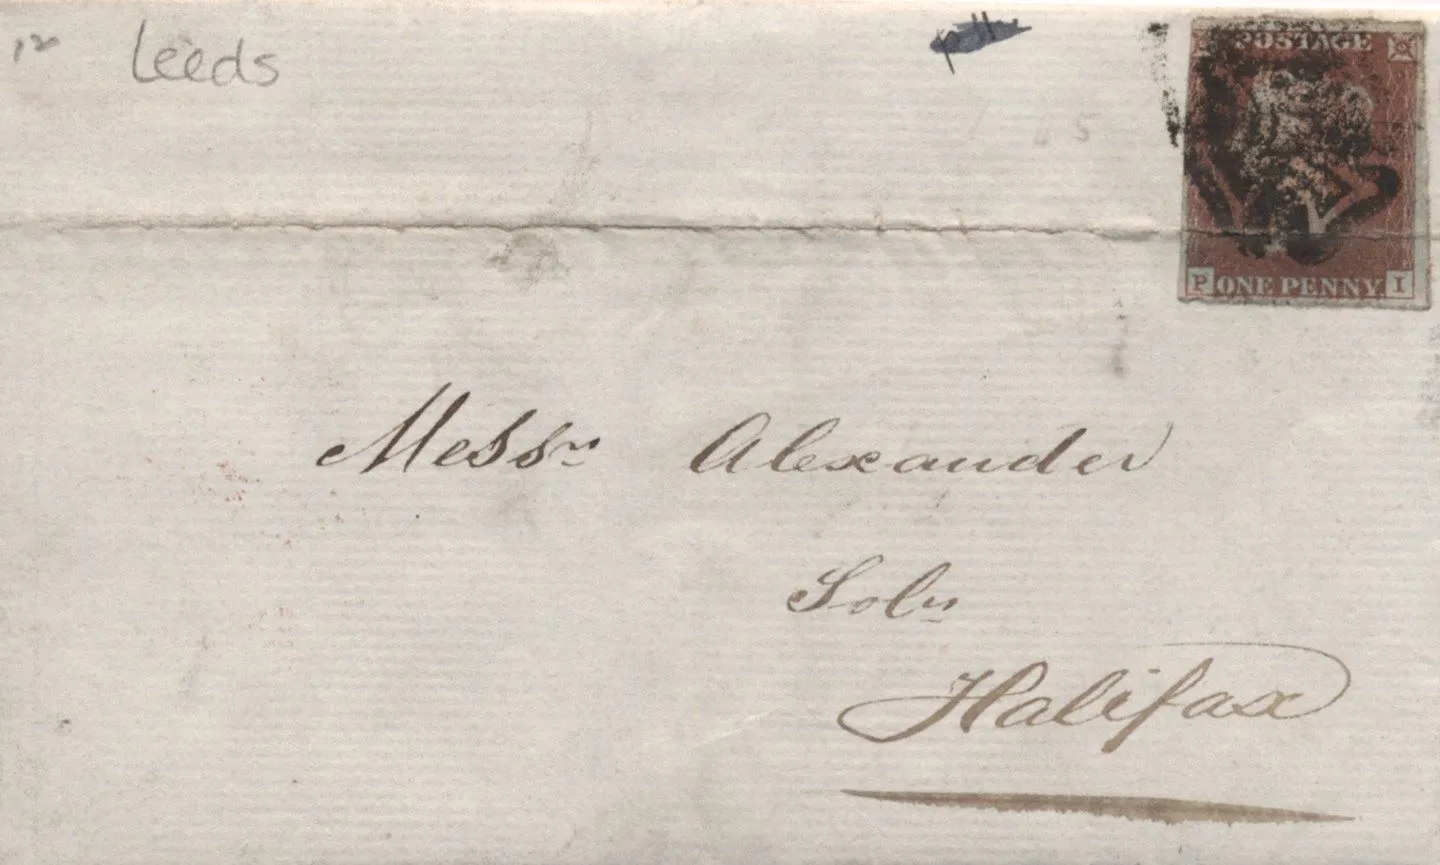 Leeds
POSTAGE
P ONE PENNY I
Messrs Alexander
Solrs
Halifax